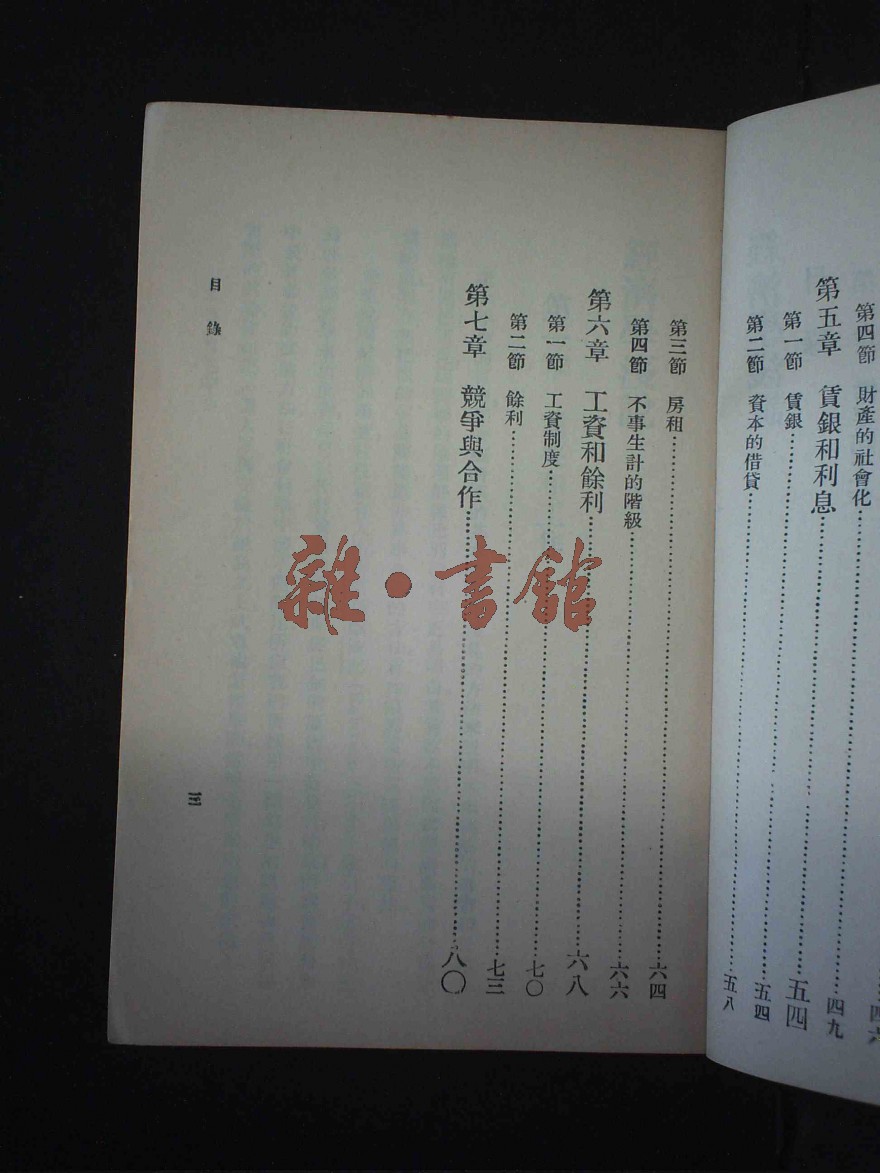 第四節 財產的社會化……四九
第五章 賃銀和利息……五四
第一節 賃銀……五四
第二節 資本的借貸……五八
第三節 房租……六四
第四節 不事生計的階級……六六
第六章 工資和餘利……六八
第一節 工資制度……七〇
第二節 餘利……七三
第七章 競爭與合作……八〇
目錄
三
雜·書館